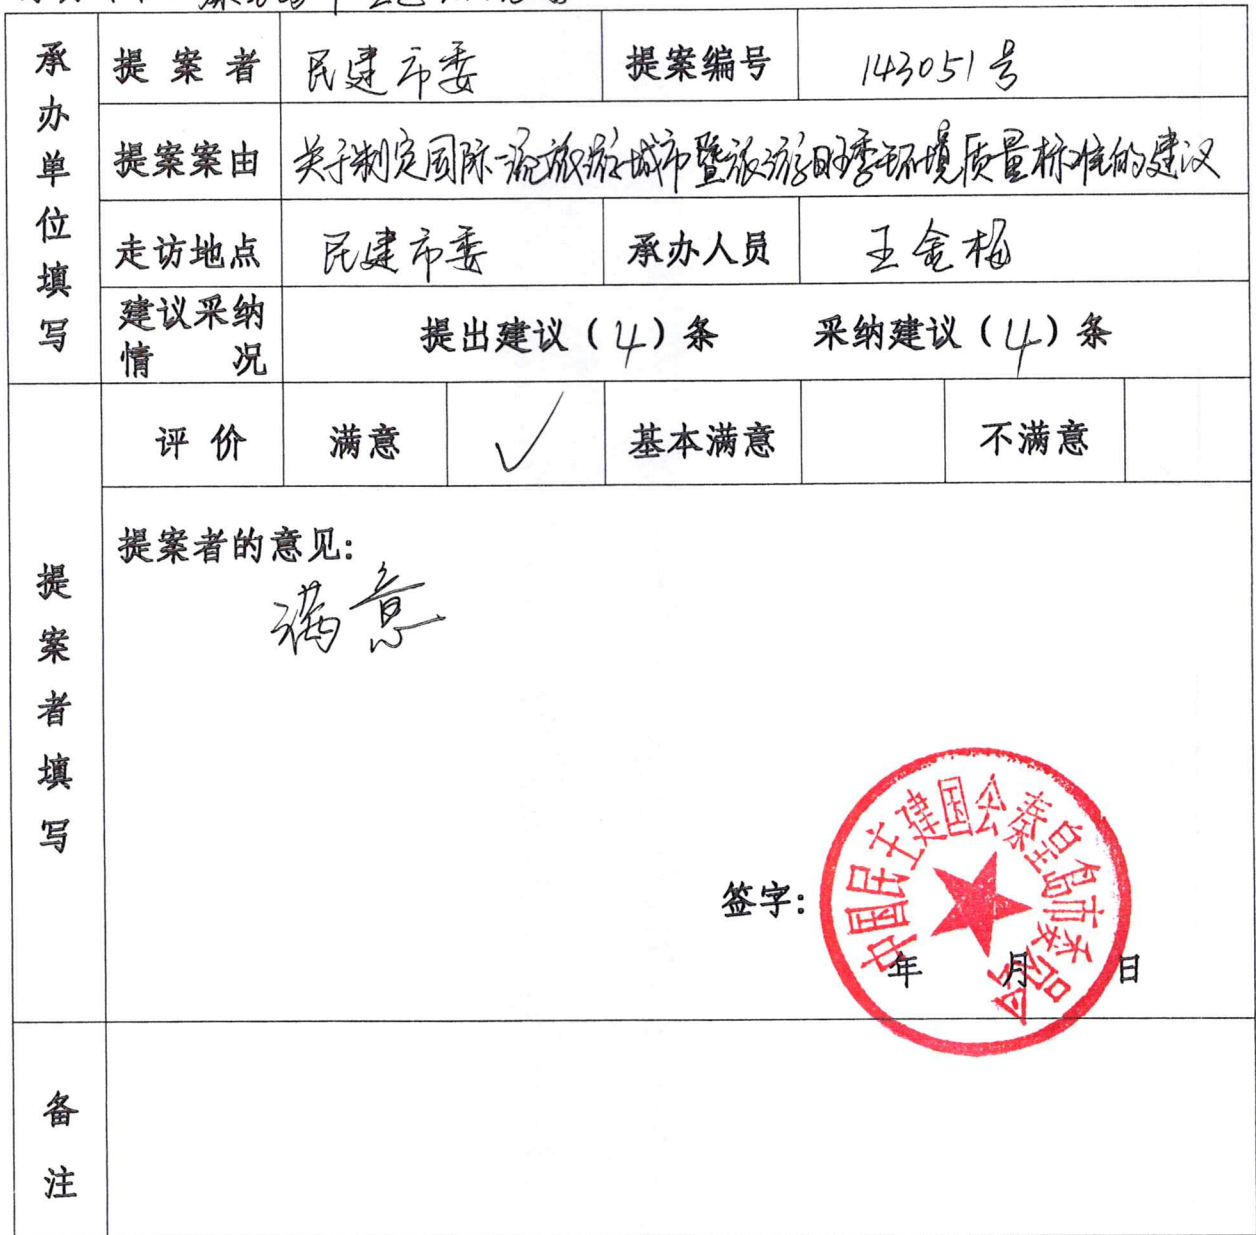 承办单位填写
提案者 民建市委 提案编号 143051号
提案案由 关于制定国际一流旅游城市暨旅游旺季环境质量标准的建议
走访地点 民建市委 承办人员 王金梅
建议采纳
情况 提出建议（4）条 采纳建议（4）条
提案者填写
评价 满意 ✓ 基本满意 不满意
提案者的意见：
满意
中国民主建国会秦皇岛市委员会
签字：
年 月 日
备注